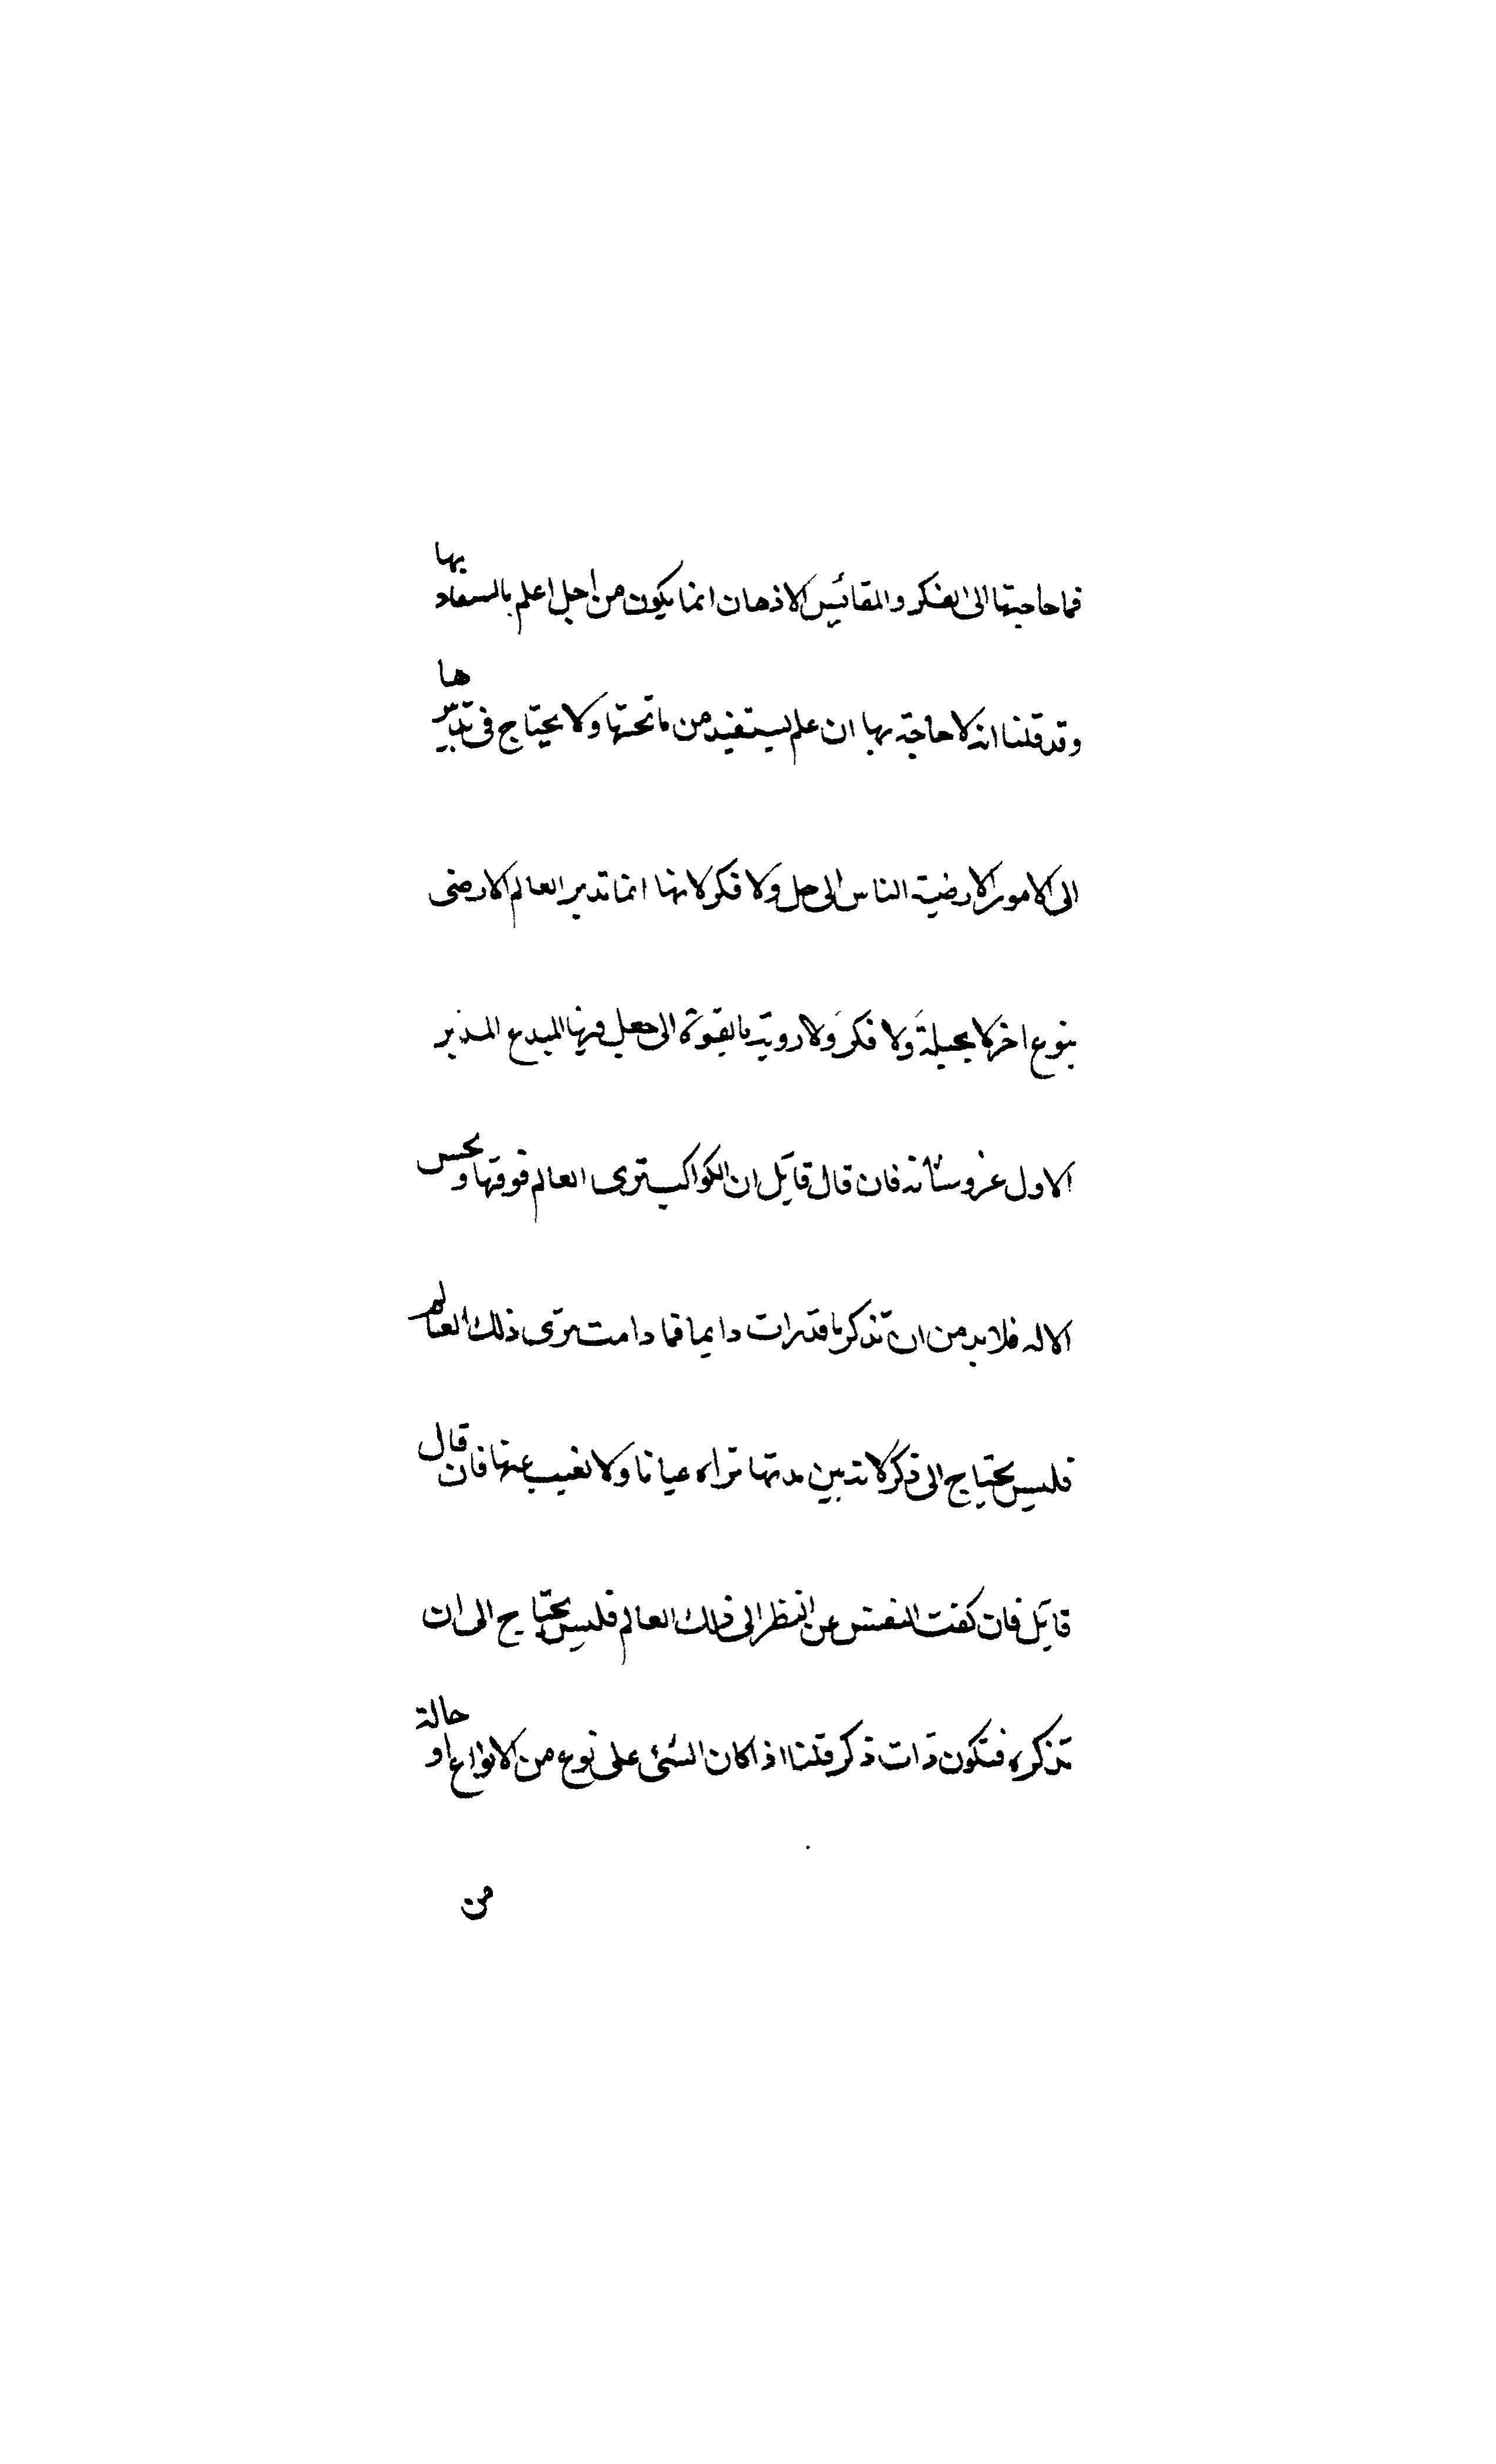 فما حاجتها الى الفكر والمقائيس لان الاذهان انما يكون من اجل اعلم بالسفاد بها
وقد قلنا انه لا حاجة بها ان علم يستفيد من ما تحتها ولا يحتاج فى تدبير ها
الى الامور الارضية الناس الى حل ولا فكر لانها انما تدبر العالم الارضى
بنوع اخر لا بحيلة ولا فكر ولا روية بالقوة الى جعل فيها المبدع المدبر
الاول عز وشانه فان قال قايل ان الكواكب ترى العالم فوقها و يحس
الاله فلا بد من ان تذكر ما قد رات دايما فما دامت ترى ذلك العالم
فليس يحتاج الى ذكر لانه بين يديها تراه عيانا ولا يغيب عنها فان قال
قايل فان كفت النفس عن النظر الى ذلك العالم فليس يحتاج الى ان
تذكره فتكون ذات ذكر قلنا اذا كان الشئ على نوع من الانواع او حالة
من